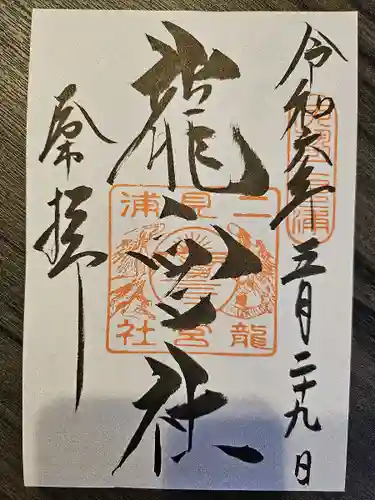 令和六年五月二十九日
龍宮社
奉拝
二見浦
龍宮社